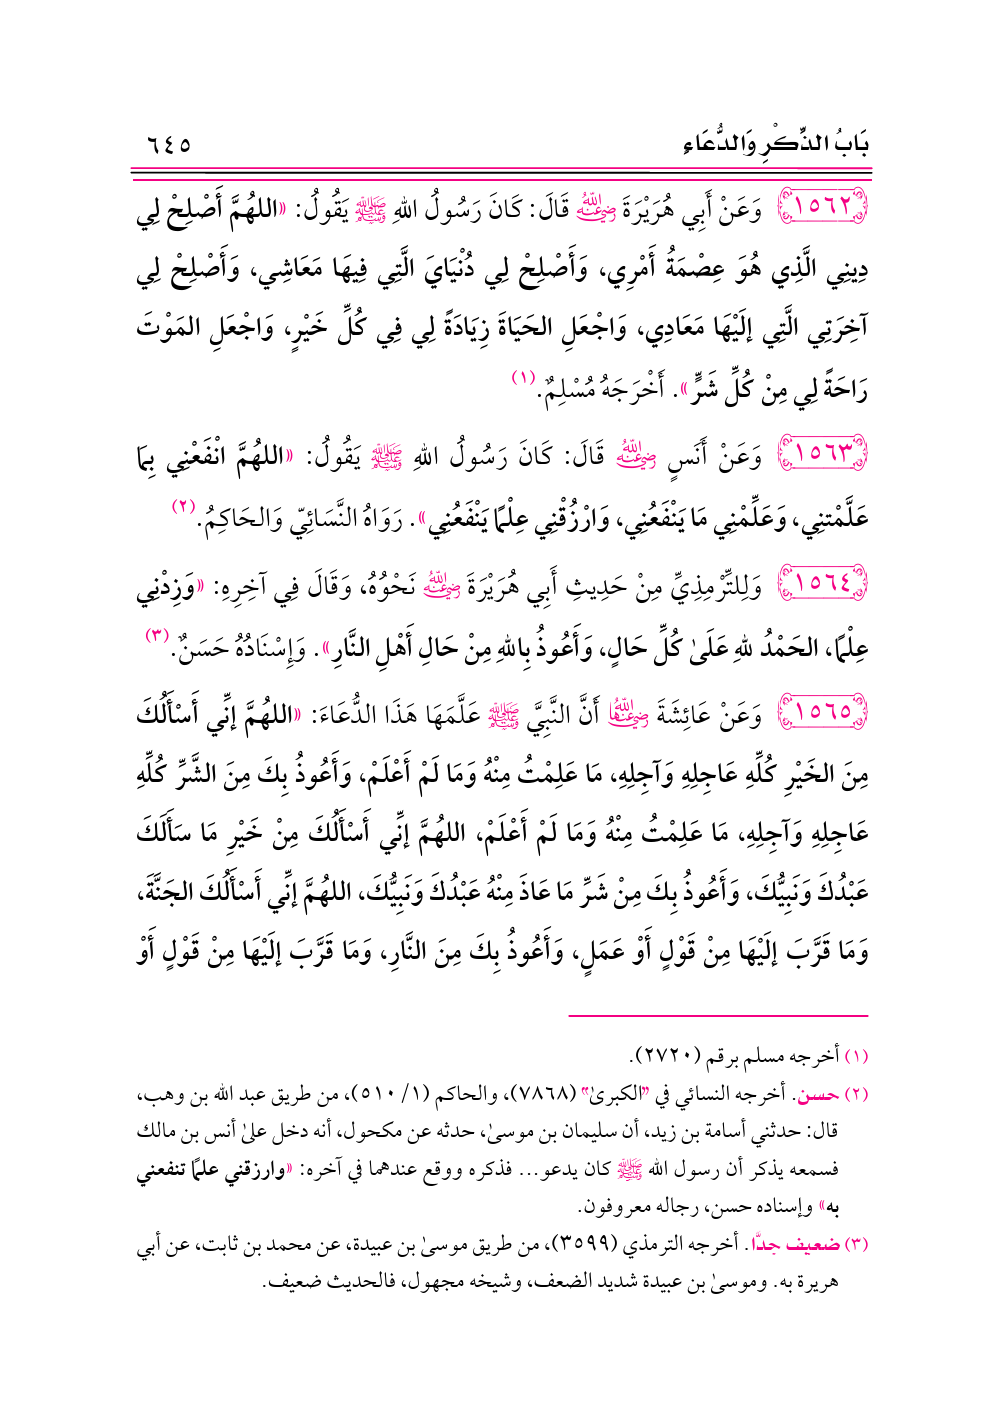 بَابُ الذِّكْرِ وَالدُّعَاء ٦٤٥
١٥٦٢ وَعَنْ أَبِي هُرَيْرَةَ رضي الله عنه قَالَ: كَانَ رَسُولُ اللهِ ﷺ يَقُولُ: «اللهُمَّ أَصْلِحْ لِي
دِينِي الَّذِي هُوَ عِصْمَةُ أَمْرِي، وَأَصْلِحْ لِي دُنْيَايَ الَّتِي فِيهَا مَعَاشِي، وَأَصْلِحْ لِي
آخِرَتِي الَّتِي إلَيْهَا مَعَادِي، وَاجْعَلِ الحَيَاةَ زِيَادَةً لِي فِي كُلِّ خَيْرٍ، وَاجْعَلِ المَوْتَ
رَاحَةً لِي مِنْ كُلِّ شَرٍّ». أَخْرَجَهُ مُسْلِمٌ.(١)
١٥٦٣ وَعَنْ أَنَسٍ رضي الله عنه قَالَ: كَانَ رَسُولُ اللهِ ﷺ يَقُولُ: «اللهُمَّ انْفَعْنِي بِمَا
عَلَّمْتنِي، وَعَلِّمْنِي مَا يَنْفَعُنِي، وَارْزُقْنِي عِلْمًا يَنْفَعُنِي». رَوَاهُ النَّسَائِيّ وَالحَاكِمُ.(٢)
١٥٦٤ وَلِلتِّرْمِذِيِّ مِنْ حَدِيثِ أَبِي هُرَيْرَةَ رضي الله عنه نَحْوُهُ، وَقَالَ فِي آخِرِهِ: «وَزِدْنِي
عِلْمًا، الحَمْدُ للهِ عَلَىٰ كُلِّ حَالٍ، وَأَعُوذُ بِاللهِ مِنْ حَالِ أَهْلِ النَّارِ». وَإِسْنَادُهُ حَسَنٌ.(٣)
١٥٦٥ وَعَنْ عَائِشَةَ رضي الله عنها أَنَّ النَّبِيَّ ﷺ عَلَّمَهَا هَذَا الدُّعَاءَ: «اللهُمَّ إنِّي أَسْأَلُكَ
مِنَ الخَيْرِ كُلِّهِ عَاجِلِهِ وَآجِلِهِ، مَا عَلِمْتُ مِنْهُ وَمَا لَمْ أَعْلَمْ، وَأَعُوذُ بِكَ مِنَ الشَّرِّ كُلِّهِ
عَاجِلِهِ وَآجِلِهِ، مَا عَلِمْتُ مِنْهُ وَمَا لَمْ أَعْلَمْ، اللهُمَّ إنِّي أَسْأَلُكَ مِنْ خَيْرِ مَا سَأَلَكَ
عَبْدُكَ وَنَبِيُّكَ، وَأَعُوذُ بِكَ مِنْ شَرِّ مَا عَاذَ مِنْهُ عَبْدُكَ وَنَبِيُّكَ، اللهُمَّ إنِّي أَسْأَلُكَ الجَنَّةَ،
وَمَا قَرَّبَ إلَيْهَا مِنْ قَوْلٍ أَوْ عَمَلٍ، وَأَعُوذُ بِكَ مِنَ النَّارِ، وَمَا قَرَّبَ إلَيْهَا مِنْ قَوْلٍ أَوْ
(١) أخرجه مسلم برقم (٢٧٢٠).
(٢) حسن. أخرجه النسائي في "الكبرىٰ" (٧٨٦٨)، والحاكم (١/ ٥١٠)، من طريق عبد الله بن وهب،
قال: حدثني أسامة بن زيد، أن سليمان بن موسىٰ، حدثه عن مكحول، أنه دخل علىٰ أنس بن مالك
فسمعه يذكر أن رسول الله ﷺ كان يدعو... فذكره ووقع عندهما في آخره: «وارزقني علمًا تنفعني
به» وإسناده حسن، رجاله معروفون.
(٣) ضعيف جدًّا. أخرجه الترمذي (٣٥٩٩)، من طريق موسىٰ بن عبيدة، عن محمد بن ثابت، عن أبي
هريرة به. وموسىٰ بن عبيدة شديد الضعف، وشيخه مجهول، فالحديث ضعيف.